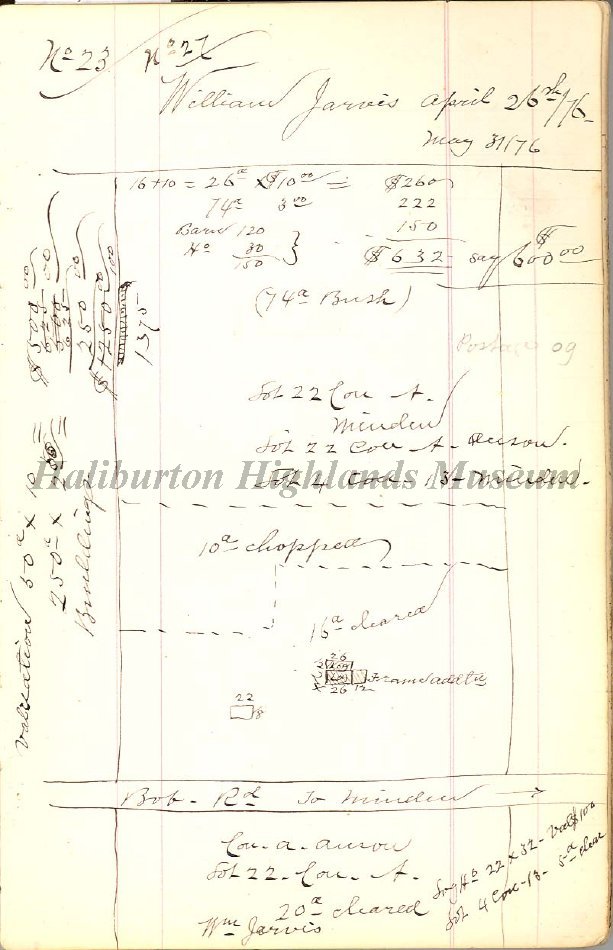 No 23 No 27
William Jarvis April 26th/76
May 31/76
16+10 = 26a x $10 00 = $260
74a 3 00 222
Barn 120 150
Ho 30
150 $632 say $600 00
(74a Bush)
Postage 09
Lot 22 Con A.
Minden
Lot 22 Con A- Anson.
Lot 4 Con 13- Minden.
Haliburton Highlands Museum
10a chopped
16a cleared
26
Log
Log Frame addtn
26 12
22
18
Bob - Rd To Minden
Con - A - Anson
Lot 22 - Con - A.
20a cleared
Wm Jarvis
Log Ho 22 x 32 - Val $100
Lot 4 Con - 13 - 5a clear
Valuation 50a x 10 = $500 00
250a x =
Buildings 250 00
1375